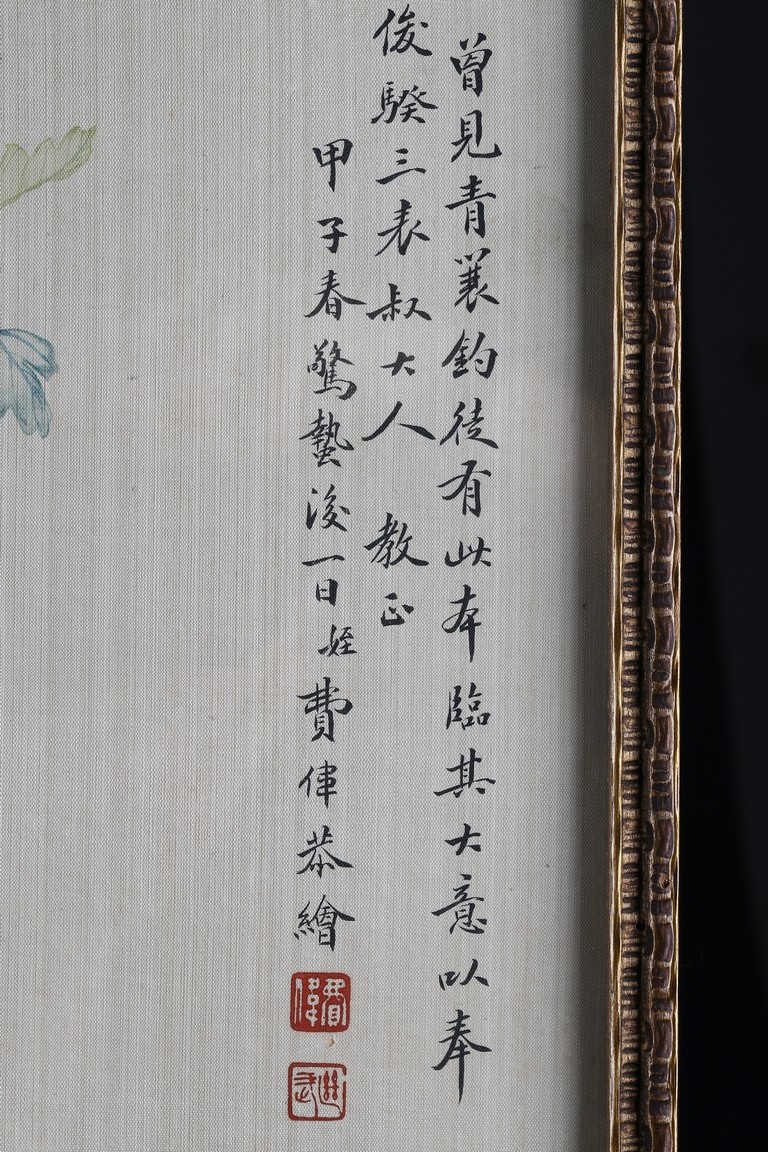 曾見青蘘釣徒有此本臨其大意以奉
俊騤三表叔大人 教正
甲子春驚蟄後一日姪費伟恭繪